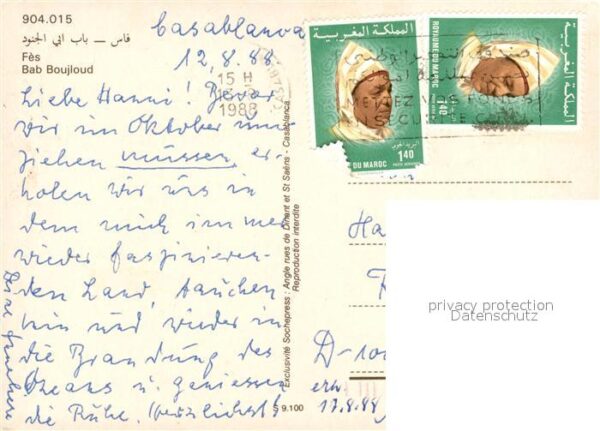 904.015
فاس — باب ابي الجنود
Fès
Bab Boujloud
Casablanca
12.8.88
Liebe Hanne! Bevor
wir im Oktober um-
ziehen müssen, er-
holen wir uns in
dem mich immer
wieder faszinieren-
den Land, tauchen
hin und wieder in
die Brandung des
Ozeans u. geniessen
die Ruhe. Herzlichst
Exclusivité Sochepress : Angle rues de Dinant et St Saëns - Casablanca
Reproduction interdite
S 9.100
المملكة المغربية
DU MAROC
1.40
المملكة المغربية
ROYAUME DU MAROC
1.40
15 H
1988
صندوق التوفير الوطني
METTEZ VOS FONDS
SECURITE
Ha
D-100
erh.
17.8.88
privacy protection
Datenschutz